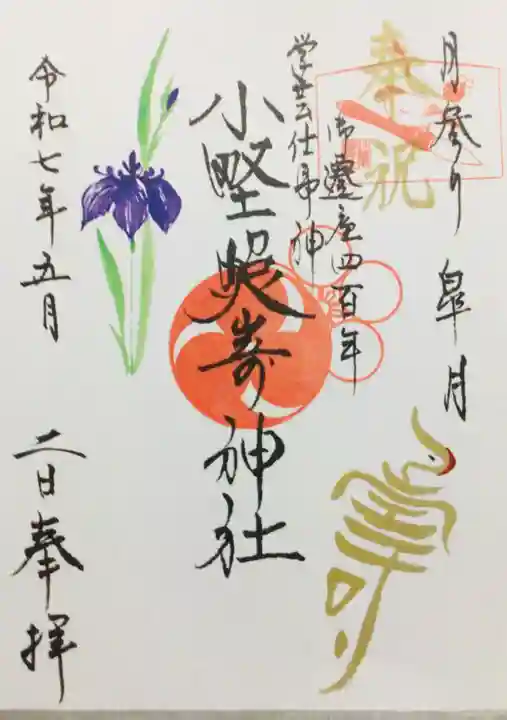 月参り 皐月
奉祝
御遷座四百年
学芸仕事神
小野照崎神社
寿
令和七年五月
二日奉拝